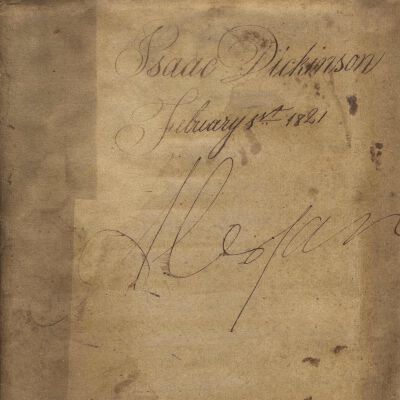 Isaac Dickinson
February 1st 1821